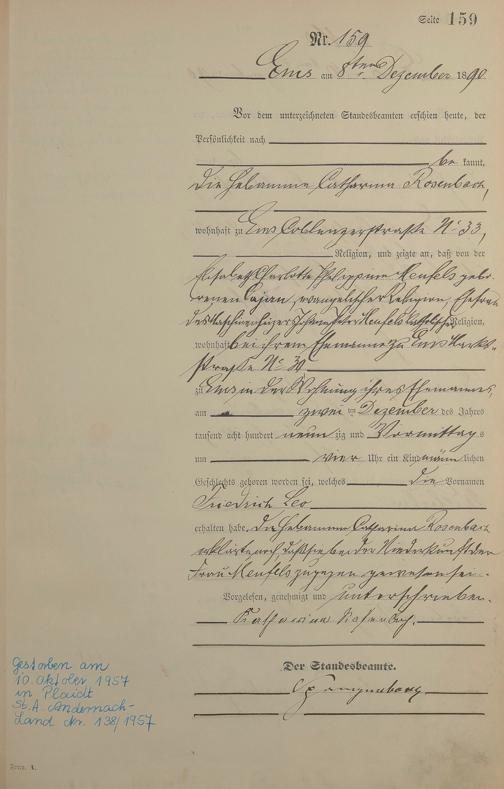 Seite 159
Nr. 159
Ems am 8ten Dezember 1890.
Vor dem unterzeichneten Standesbeamten erschien heute, der
Persönlichkeit nach
be kannt,
die Hebamme Catharina Rosenbach,
wohnhaft zu Ems Coblenzerstraße No 33,
Religion, und zeigte an, daß von der
Elisabeth Charlotte Philippine Menfels gebo-
renen Cajan, evangelischer Religion, Ehefrau
des Maschinenheizer Menfels katholischer Religion,
wohnhaft bei ihrem Ehemanne zu Ems Markt-
straße No 30
zu Ems in der Wohnung ihres Ehemannes,
am zwei ten Dezember des Jahres
tausend acht hundert neun zig und Vormittags
um vier Uhr ein Kind männ lichen
Geschlechts geboren worden sei, welches die Vornamen
Friedrich Leo
erhalten habe. Die Hebamme Catharina Rosenbach
erklärte noch, daß sie bei der Niederkunft der
Frau Menfels zugegen gewesen sei.
Vorgelesen, genehmigt und unterschrieben.
Katharina Rosenbach.
Der Standesbeamte.
Spangenberg
Gestorben am
10. Oktober 1957
in Plaidt
St. A. Andernach-
Land Nr. 138/1957
Form. A.